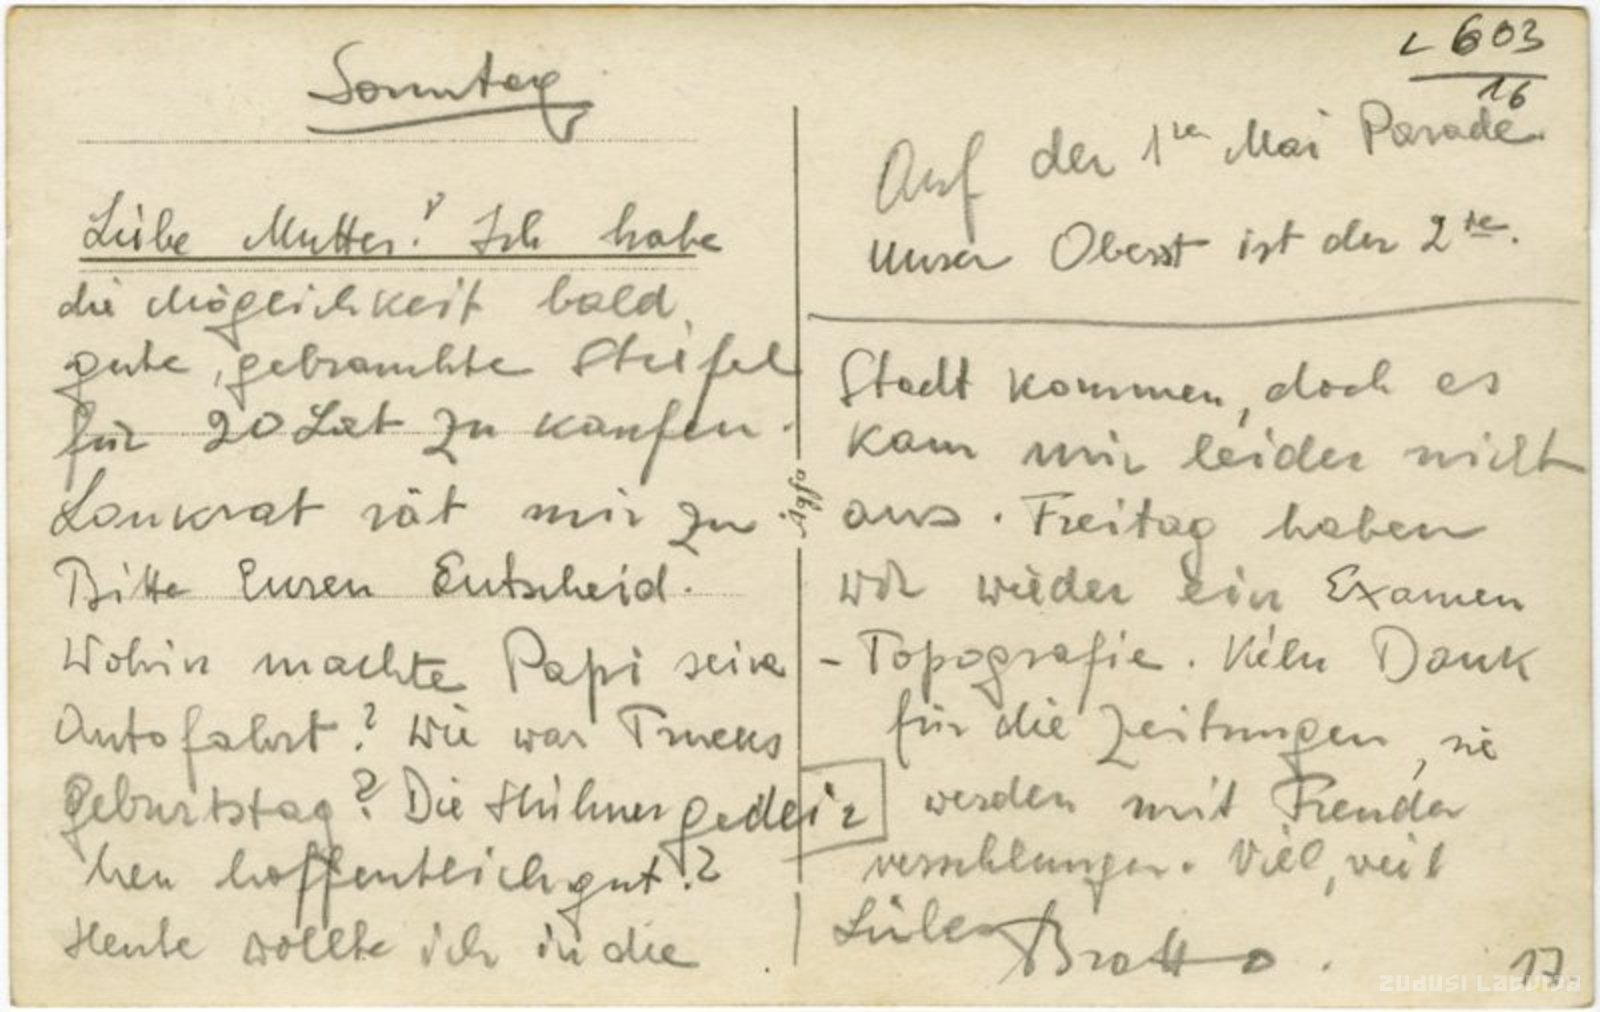 Sonntag
Liebe Mutter! Ich habe
die Möglichkeit bald
gute, gebrauchte Stiefel
für 20 Lat zu kaufen.
rät mir zu
Bitte Euren Entscheid.
Wohin machte Papi seine
Autofahrt? Wie war
Geburtstag? Die Hühner gedei=
hen hoffentlich gut?
Heute wollte ich in die
L 603
16
Auf der 1ten Mai Parade
Unser Oberst ist der 2te.
Stadt kommen, doch es
kam mir leider nicht
aus. Freitag haben
wir wieder ein Examen
- Topografie. Vieln Dank
für die Zeitungen, sie
werden mit Freuden
verschlungen. Viel, viel
Liebe
17
ZUDUSI LATVIJA